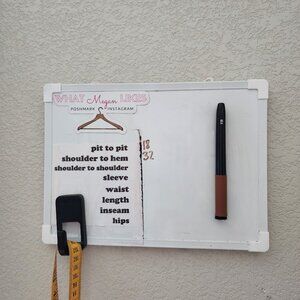 WHAT Megan LIKES
POSHMARK INSTAGRAM
pit to pit 18
shoulder to hem 32
shoulder to shoulder
sleeve
waist
length
inseam
hips